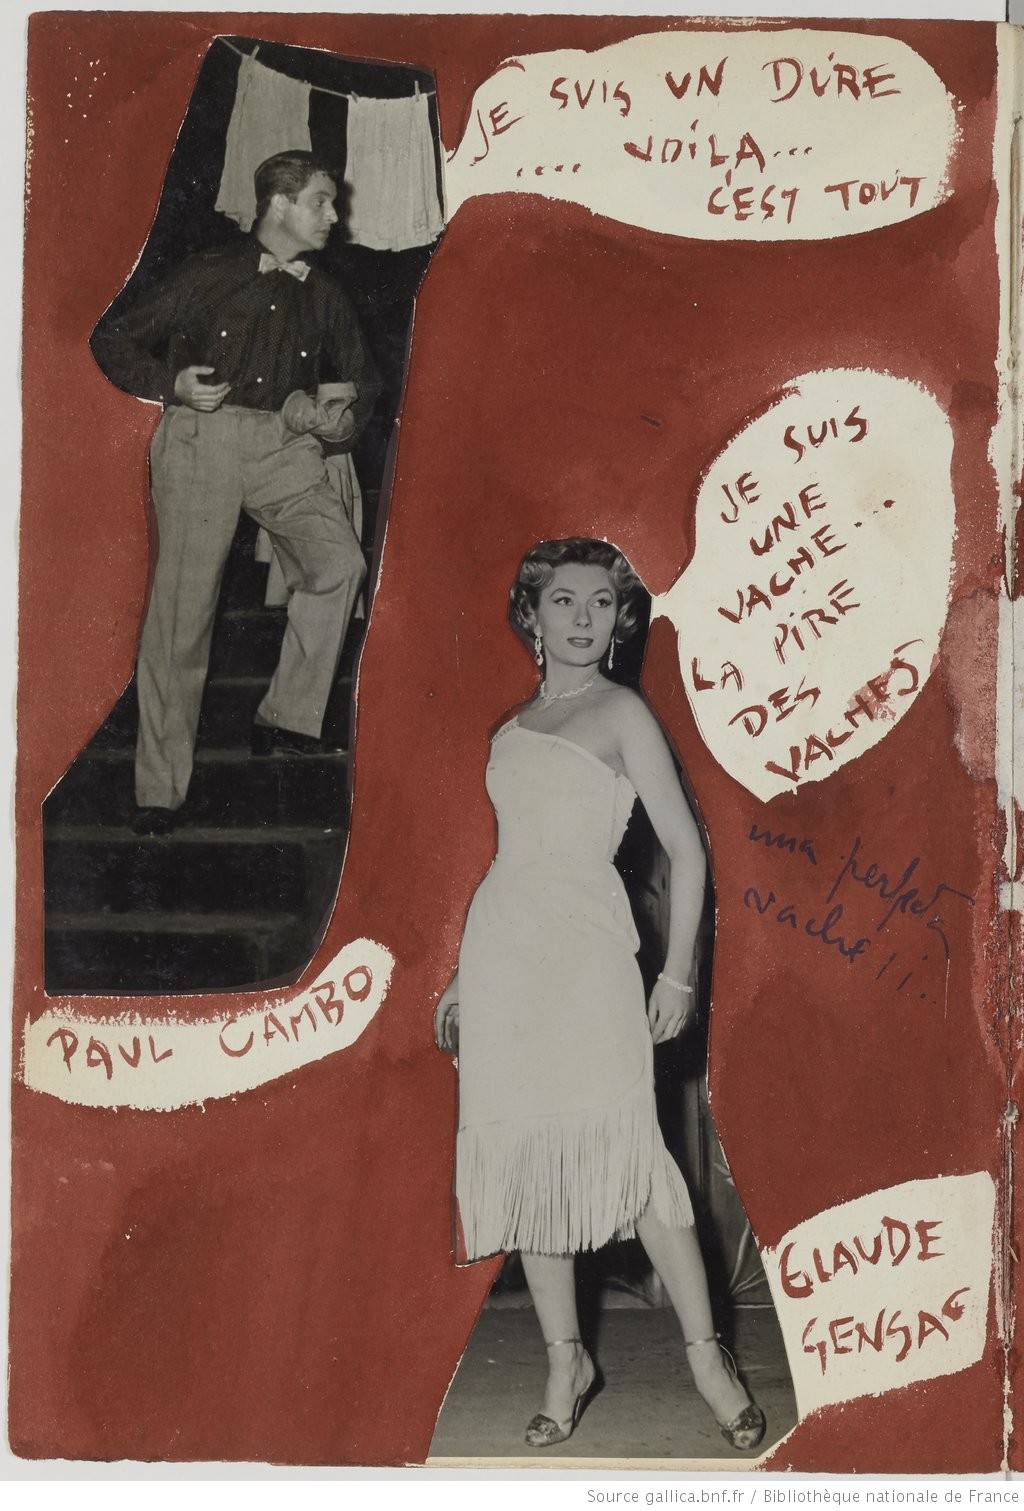 JE SUIS UN DURE
.... VOILA...
C'EST TOUT
JE SUIS
UNE
VACHE...
LA PIRE
DES
VACHES
una perfecta
vache!!..
PAUL CAMBO
CLAUDE
GENSAC
Source gallica.bnf.fr / Bibliothèque nationale de France